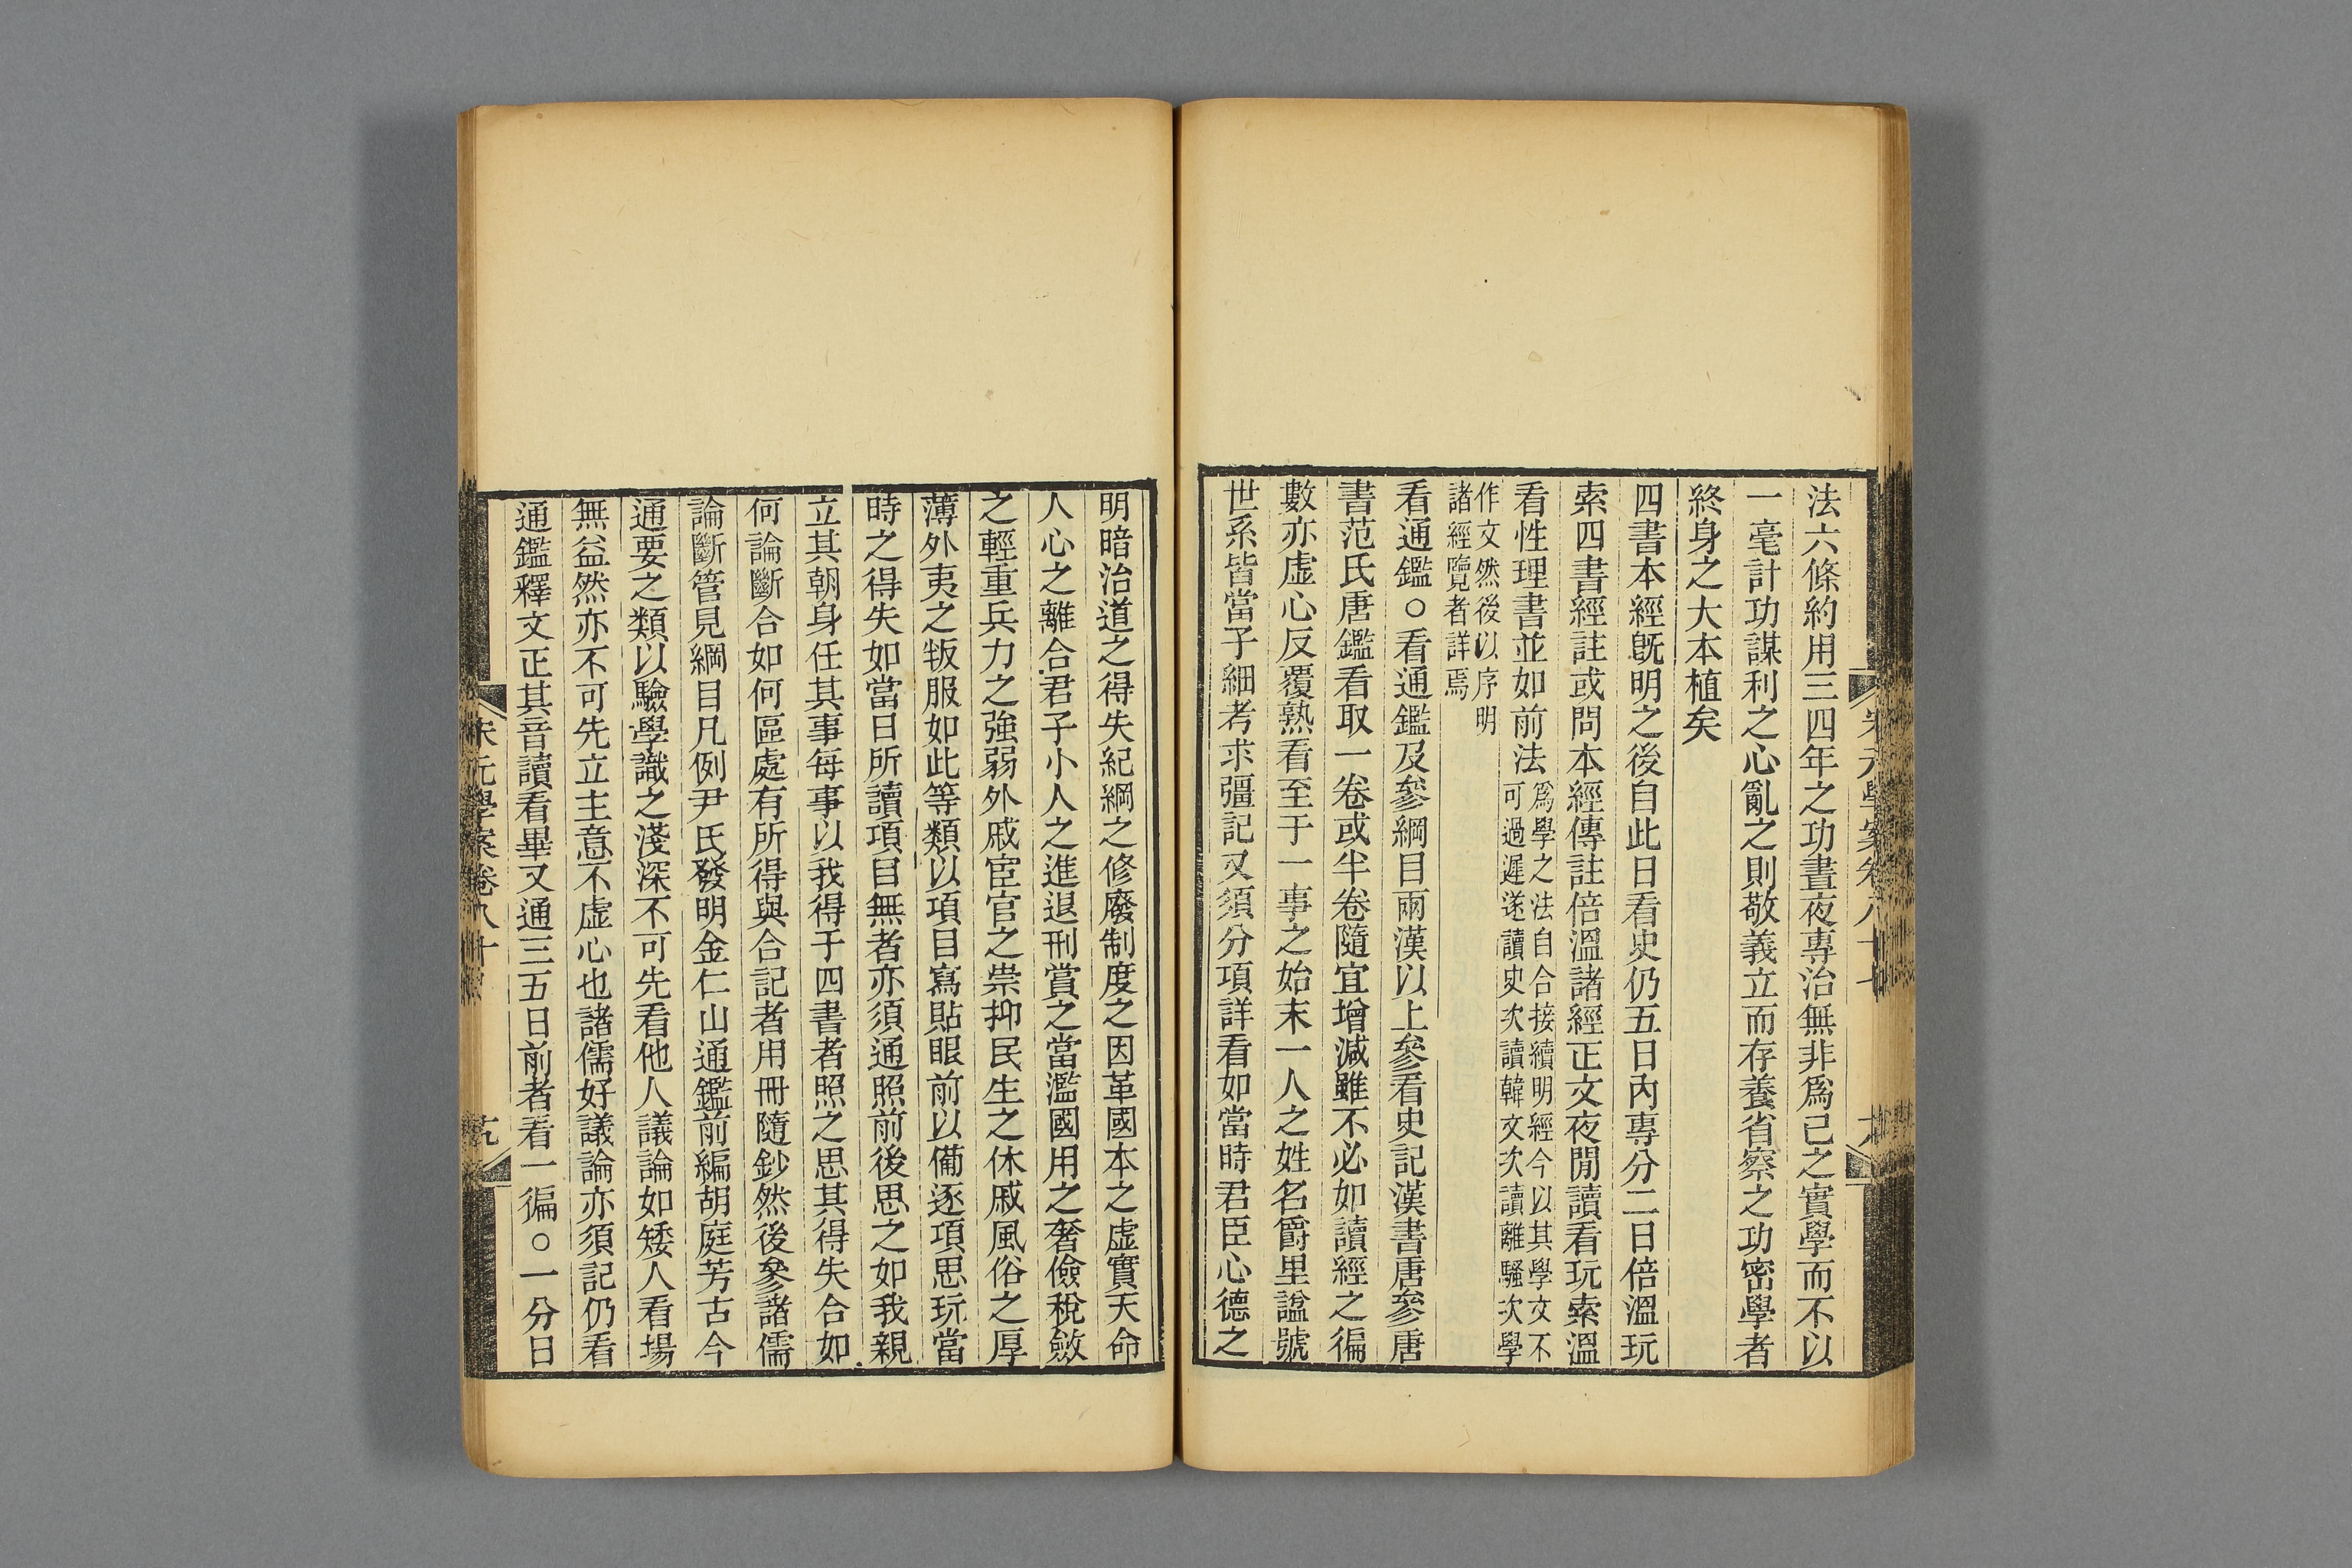 法六條約用三四年之功晝夜專治無非爲己之實學而不以
一毫計功謀利之心亂之則敬義立而存養省察之功密學者
終身之大本植矣
四書本經旣明之後自此日看史仍五日內專分二日倍溫玩
索四書經註或問本經傳註倍溫諸經正文夜閒讀看玩索溫
看性理書並如前法
爲學之法自合接續明經今以其學文不
可過遲遂讀史次讀韓文次讀離騷次學
作文然後以序明
諸經覽者詳焉
看通鑑○看通鑑及參綱目兩漢以上參看史記漢書唐參唐
書范氏唐鑑看取一卷或半卷隨宜增減雖不必如讀經之徧
數亦虛心反覆熟看至于一事之始末一人之姓名爵里諡號
世系皆當子細考求彊記又須分項詳看如當時君臣心德之
明暗治道之得失紀綱之修廢制度之因革國本之虛實天命
人心之離合君子小人之進退刑賞之當濫國用之奢儉稅斂
之輕重兵力之強弱外戚宦官之崇抑民生之休戚風俗之厚
薄外夷之叛服如此等類以項目寫貼眼前以備逐項思玩當
時之得失如當日所讀項目無者亦須通照前後思之如我親
立其朝身任其事每事以我得于四書者照之思其得失合如
何論斷合如何區處有所得與合記者用冊隨鈔然後參諸儒
論斷管見綱目凡例尹氏發明金仁山通鑑前編胡庭芳古今
通要之類以驗學識之淺深不可先看他人議論如矮人看場
無益然亦不可先立主意不虛心也諸儒好議論亦須記仍看
通鑑釋文正其音讀看畢又通三五日前者看一徧○一分日
宋元學案卷八十